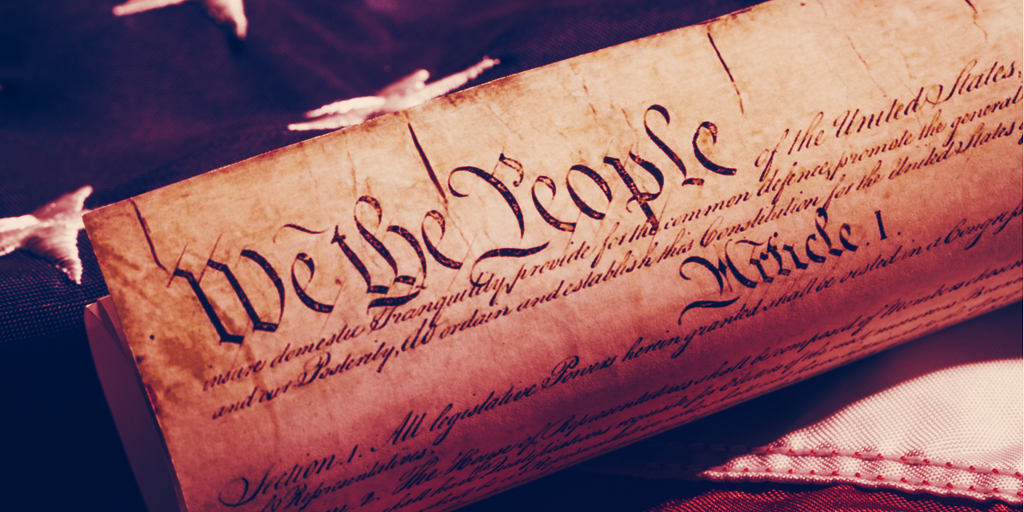 We the People of the United States,
insure domestic Tranquility, provide for the common defence, promote the general
and our Posterity, do ordain and establish this Constitution for the United States
Article. I.
Section. 1. All legislative Powers herein granted shall be vested in a Congress
Representatives.
2. The House of Representatives shall be composed of Members